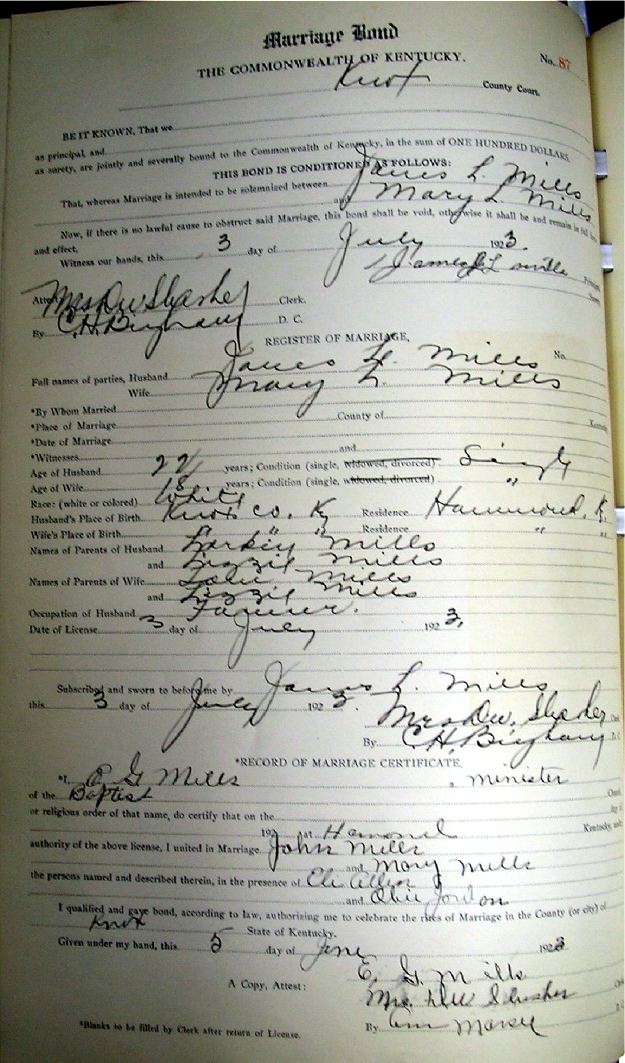 Marriage Bond
THE COMMONWEALTH OF KENTUCKY.
No. 87
Knox County Court.
BE IT KNOWN, That we
as principal, and
as surety, are jointly and severally bound to the Commonwealth of Kentucky, in the sum of ONE HUNDRED DOLLARS.
THIS BOND IS CONDITIONED AS FOLLOWS:
That, whereas Marriage is intended to be solemnized between James L. Mills
and Mary L. Mills
Now, if there is no lawful cause to obstruct said Marriage, this bond shall be void, otherwise it shall be and remain in full
and effect.
Witness our hands, this 3 day of July 1923.
James L mills
Attest Mrs Dw Slusher Clerk.
By C.H. Bingham D. C.
REGISTER OF MARRIAGE,
No.
Full names of parties, Husband James L. Mills
Wife Mary L. Mills
*By Whom Married
*Place of Marriage County of
*Date of Marriage
*Witnesses and
Age of Husband 22 years; Condition (single, widowed, divorced) Single
Age of Wife 18 years; Condition (single, widowed, divorced) "
Race: (white or colored) White
Husband's Place of Birth Knox co. Ky Residence Hammond, K.
Wife's Place of Birth " " Residence " "
Names of Parents of Husband Larkin Mills
and Lizzie Mills
Names of Parents of Wife Mills
and Lizzie Mills
Occupation of Husband Farmer.
Date of License 3 day of July 1923.
Subscribed and sworn to before me by James L. Mills
this 3 day of July 1923.
Mrs Dw. Slusher
By C.H. Bingham D. C
*RECORD OF MARRIAGE CERTIFICATE.
*I, E G Mills, minister
of the Baptist
or religious order of that name, do certify that on the
192 at Hamond Kentucky, under
authority of the above license, I united in Marriage John Mills
and Mary Mills
the persons named and described therein, in the presence of
and Jordon
I qualified and gave bond, according to law, authorizing me to celebrate the rites of Marriage in the County (or city) of
Knox State of Kentucky.
Given under my hand, this 5 day of June 1923
E. G. Mills
A Copy, Attest: Mrs. DW Slusher
By
*Blanks to be filled by Clerk after return of License.